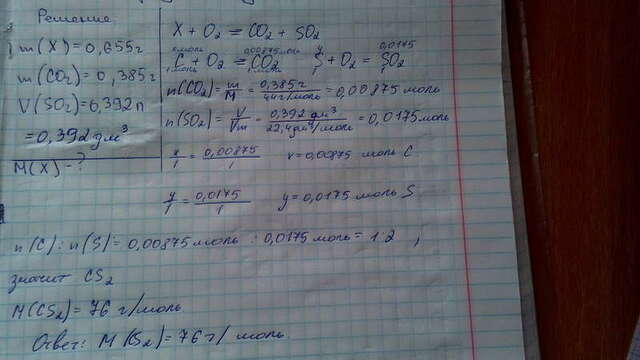 Решение
m(X)=0,655г
m(CO2)=0,385г
V(SO2)=0,392л
=0,392дм³
M(X)-?
X+O2=CO2+SO2
x моль 0,00875 моль y 0,0175
C+O2=CO2 S+O2=SO2
1 моль 1 моль 1 1
n(CO2)=m/M=0,385г/44г/моль=0,00875 моль
n(SO2)=V/Vm=0,392 дм³/22,4дм³/моль=0,0175моль
x/1=0,00875/1 x=0,00875 моль C
y/1=0,0175/1 y=0,0175 моль S
n(C):n(S)=0,00875моль:0,0175моль=1:2,
значит CS2
M(CS2)=76 г/моль
Ответ: M(CS2)=76г/моль